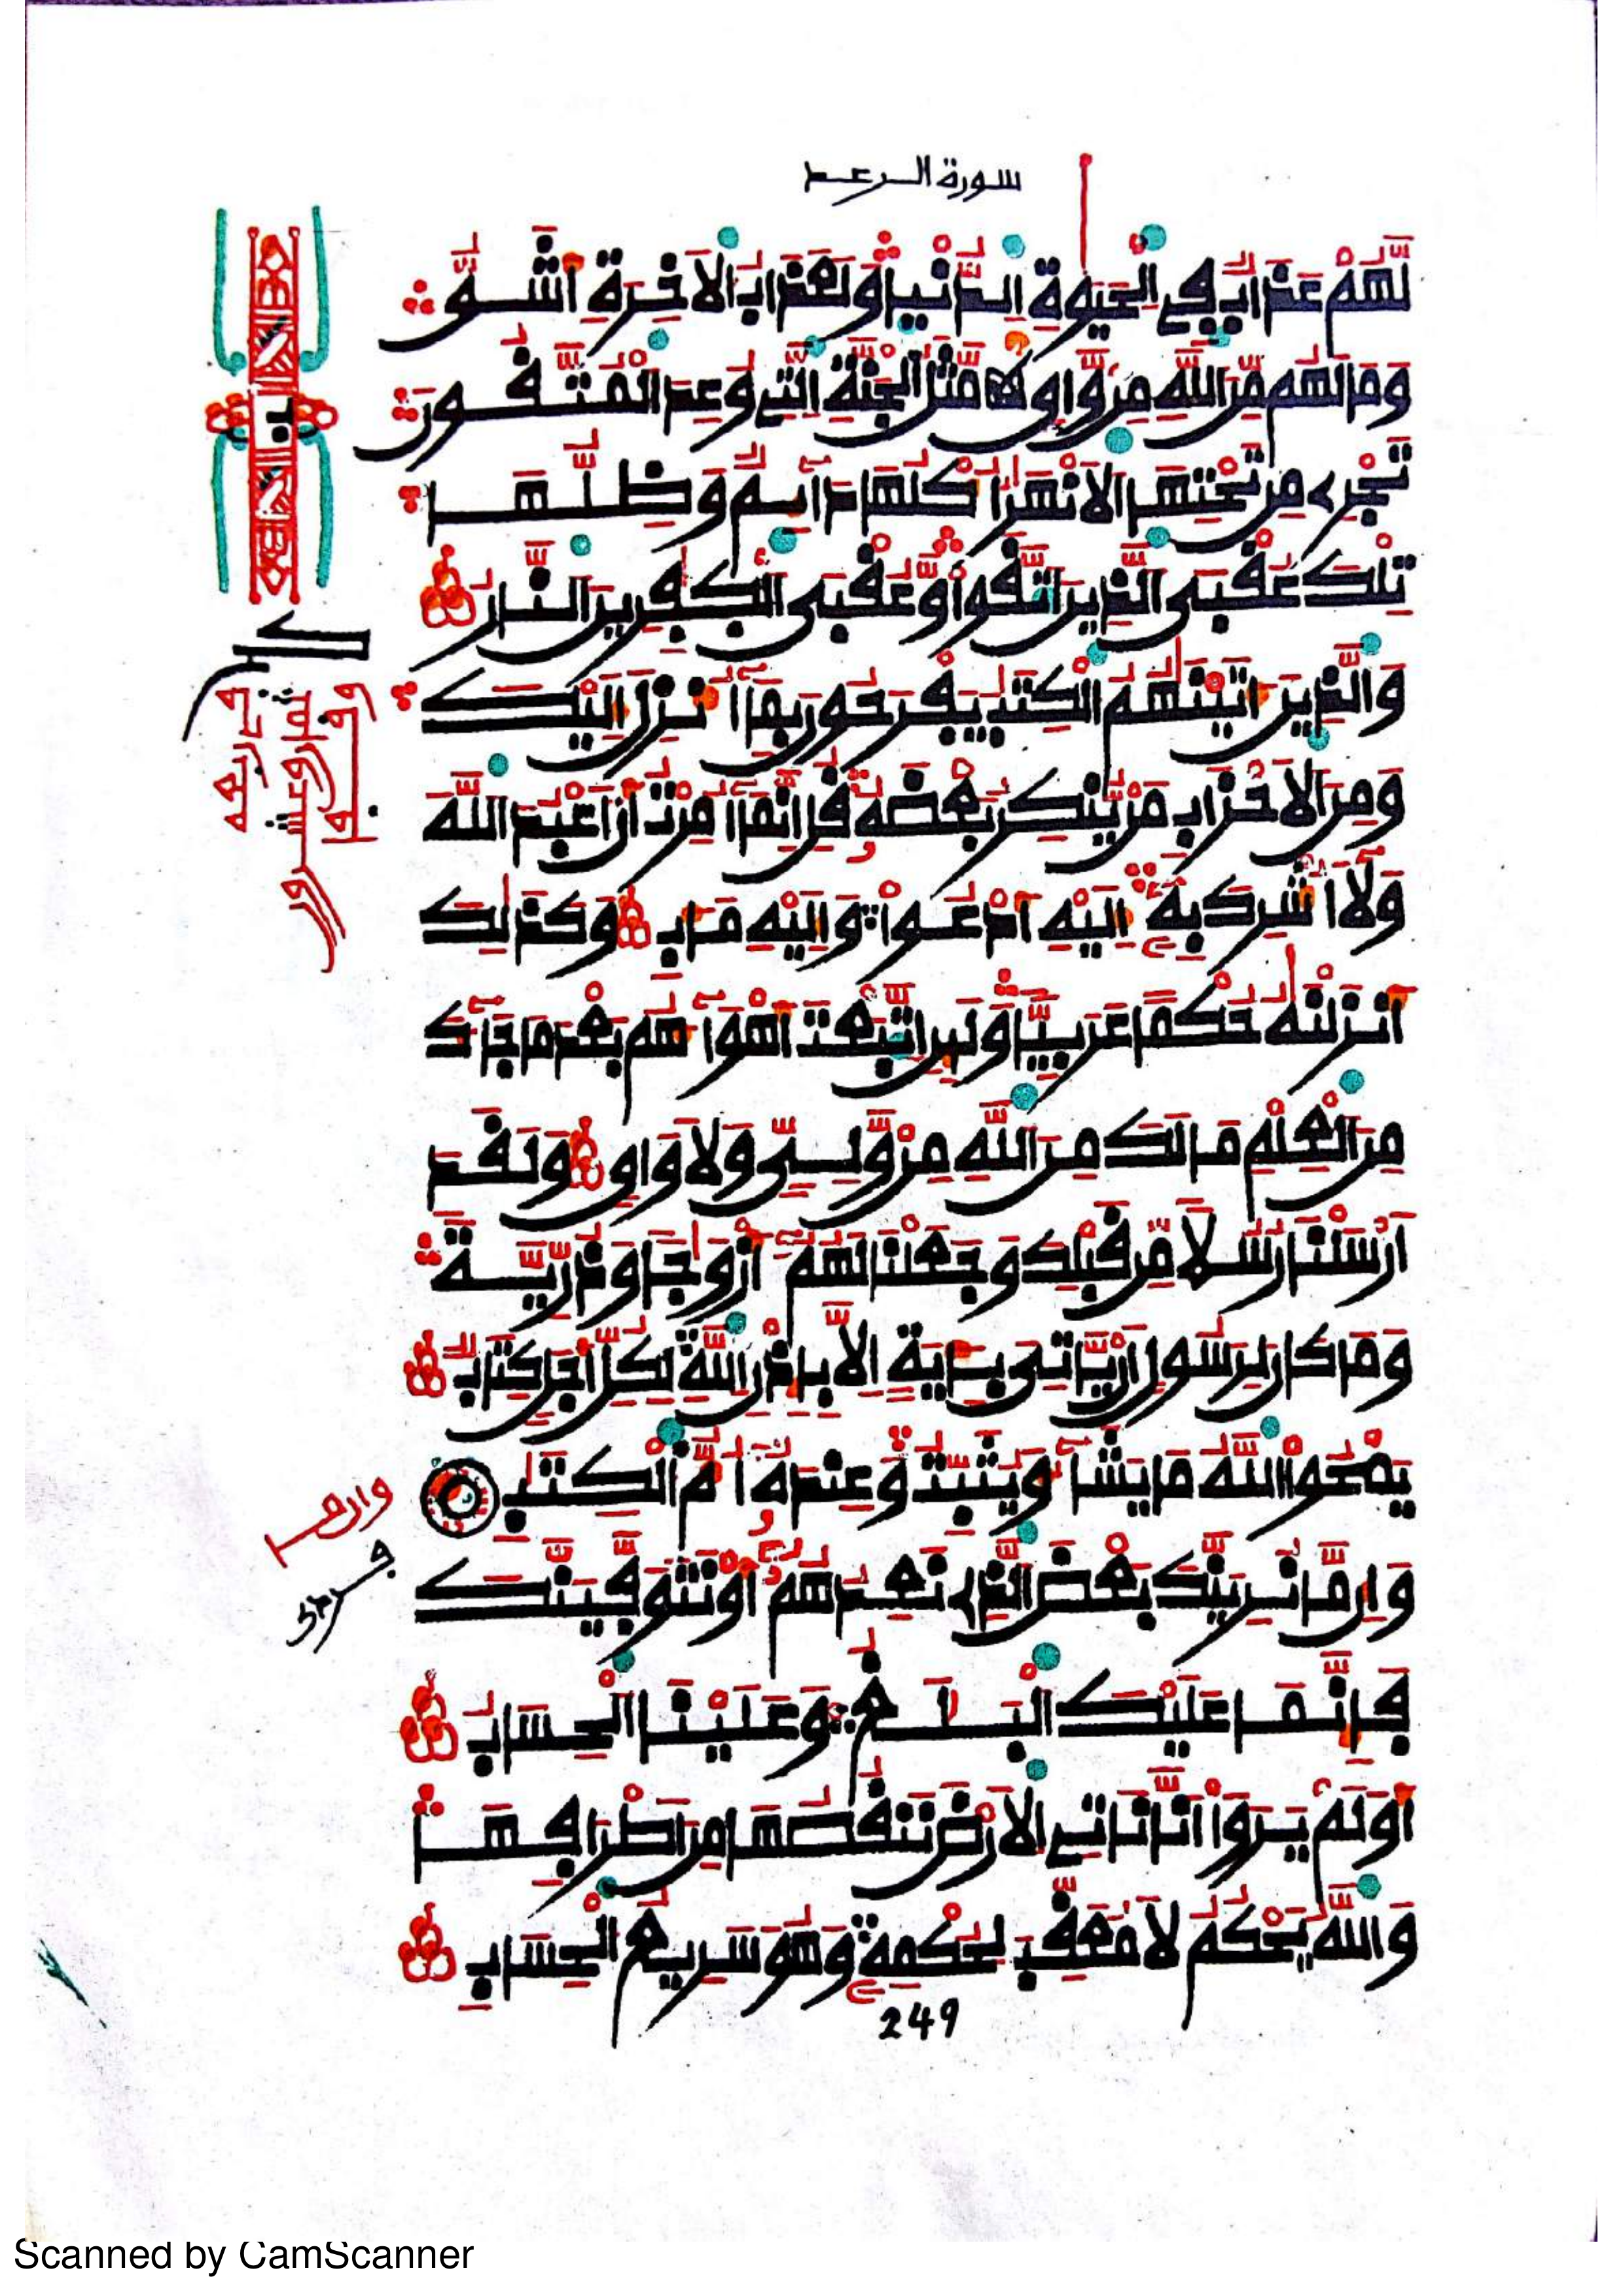 سورة الرعد
لَّهُمْ عَذَابٌ فِي الْحَيَوٰةِ الدُّنْيَا وَلَعَذَابُ الْأَخِرَةِ أَشَقُّ
وَمَا لَهُم مِّنَ اللَّهِ مِنْ وَّاقٍ مَّثَلُ الْجَنَّةِ الَّتِي وُعِدَ الْمُتَّقُونَ
تَجْرِي مِن تَحْتِهَا الْأَنْهَٰرُ أُكْلُهَا دَآئِمٌ وَظِلُّهَا
تِلْكَ عُقْبَى الَّذِينَ اتَّقَوا وَّعُقْبَى الْكَٰفِرِينَ النَّارُ
وَالَّذِينَ ءَاتَيْنَٰهُمُ الْكِتَٰبَ يَفْرَحُونَ بِمَآ أُنزِلَ إِلَيْكَ
وَمِنَ الْأَحْزَابِ مَنْ يُّنكِرُ بَعْضَهُ قُلْ إِنَّمَآ أُمِرْتُ أَنْ أَعْبُدَ اللَّهَ
وَلَآ أُشْرِكَ بِهِ إِلَيْهِ أَدْعُوا وَإِلَيْهِ مَـَٔابِ وَكَذَٰلِكَ
أَنزَلْنَٰهُ حُكْمًا عَرَبِيًّا وَلَئِنِ اتَّبَعْتَ أَهْوَآءَهُم بَعْدَ مَا جَآءَكَ
مِنَ الْعِلْمِ مَا لَكَ مِنَ اللَّهِ مِنْ وَّلِيٍّ وَلَا وَاقٍ وَلَقَدْ
أَرْسَلْنَا رُسُلًا مِّن قَبْلِكَ وَجَعَلْنَا لَهُمْ أَزْوَٰجًا وَذُرِّيَّةً
وَمَا كَانَ لِرَسُولٍ أَنْ يَّأْتِيَ بِـَٔايَةٍ إِلَّا بِإِذْنِ اللَّهِ لِكُلِّ أَجَلٍ كِتَابٌ
يَمْحُوا اللَّهُ مَا يَشَآءُ وَيُثَبِّتُ وَعِندَهُ أُمُّ الْكِتَٰبِ
وَإِن مَّا نُرِيَنَّكَ بَعْضَ الَّذِي نَعِدُهُمْ أَوْ نَتَوَفَّيَنَّكَ
فَإِنَّمَا عَلَيْكَ الْبَلَٰغُ وَعَلَيْنَا الْحِسَابُ
أَوَلَمْ يَرَوْا أَنَّا نَأْتِي الْأَرْضَ نَنقُصُهَا مِنْ أَطْرَافِهَا
وَاللَّهُ يَحْكُمُ لَا مُعَقِّبَ لِحُكْمِهِ وَهُوَ سَرِيعُ الْحِسَابِ
249
Scanned by CamScanner